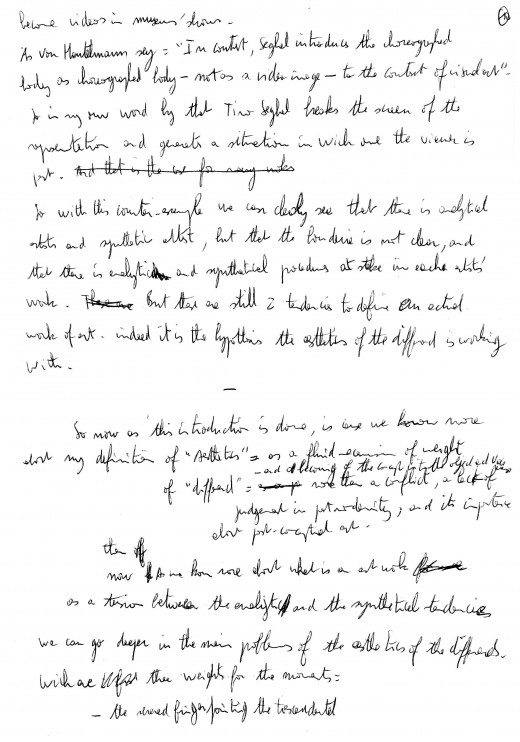 become videos in museums' shows.
As von Hantelmann say = "In contrast, Seghel introduces the choreographed
body as choreographed body - not as a video image - to the context of visual art".
So in my own word by that Tino Seghel breaks the screen of the
representation and generates a situation in wich one the viewer is
part. And that is the for many
So with this counter-example we can clearly see that there is analytical
artists and synthetic artist, but that the borderie is not clear, and
that there is analytic and synthetical procedures at stake in each artists'
work. But there are still 2 tendencies to define an actual
work of art. indeed it is the hypothesis the esthetics of the differend is working
with.
—
So now as this introduction is done, is one we know more
about my definition of "aesthetics" = as a fluid of weight
- and of the concept into the object and
of "differend" = more than a conflict, a lack of
judgement in postmodernity, and its importance
about post-conceptual art.
then
now As we know more about what is an art work
as a tension between the analytic and the synthetical tendencies
we can go deeper in the main problems of the esthetics of the differends.
Wich are three weights for the moments =
- the sacred finger pointing the transcendental